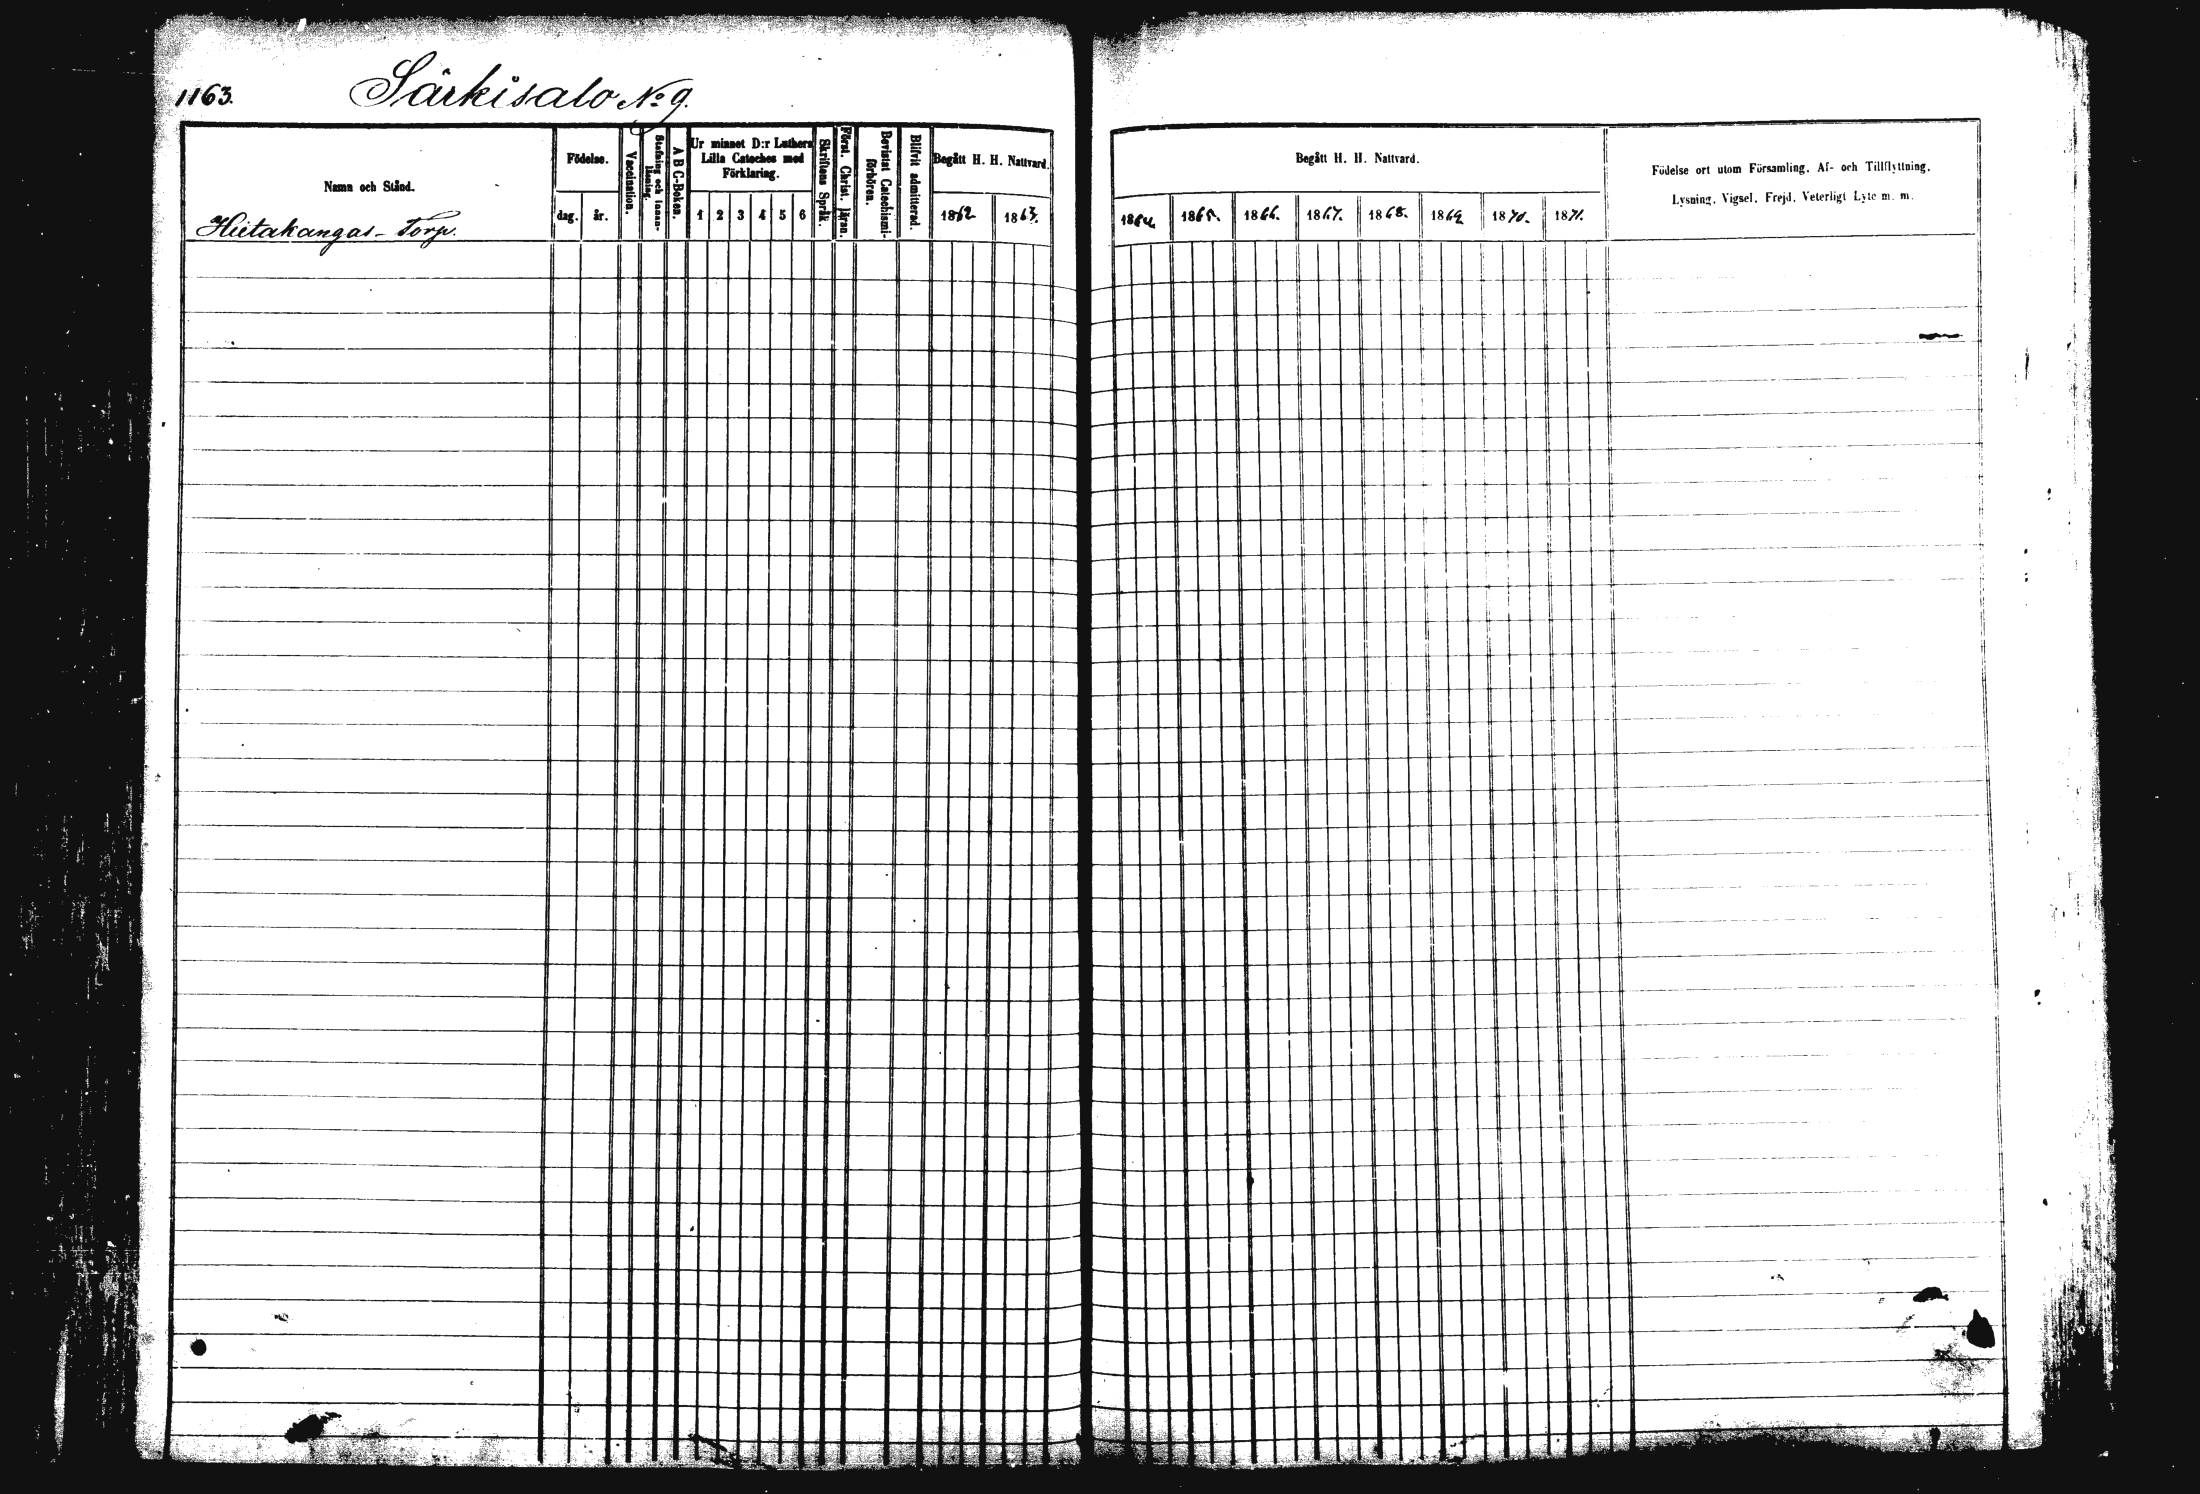 1163.
Särkisalo No 9.
Namn och Stånd.
Hietakangas - Torp.
Födelse.
dag. år.
Vaccination.
Stafning och innan-
läsning.
A B C-Boken.
Ur minnet D:r Luthers
Lilla Cateches med
Förklaring.
1 2 3 4 5 6
Skriftens Språk.
Först. Christ. läran.
Bevistat Catechismi-
förhören.
Blifvit admitterad.
Begått H. H. Nattvard.
1862 1863.
Begått H. H. Nattvard.
1864 1865. 1866. 1867. 1868. 1869 1870. 1871.
Födelse ort utom Församling, Af- och Tillflyttning,
Lysning, Vigsel, Frejd, Veterligt Lyte m. m.